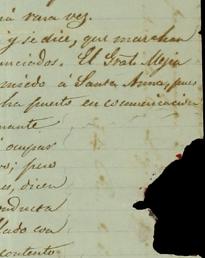 rá rara vez.
y se dice, que marchan
unciados. El Gral. Mejia
miedo á Santa Anna, pues
ha puesto en comunicacion
mante
ocupar
os; pero
es, dicen
onducta
llado con
contento